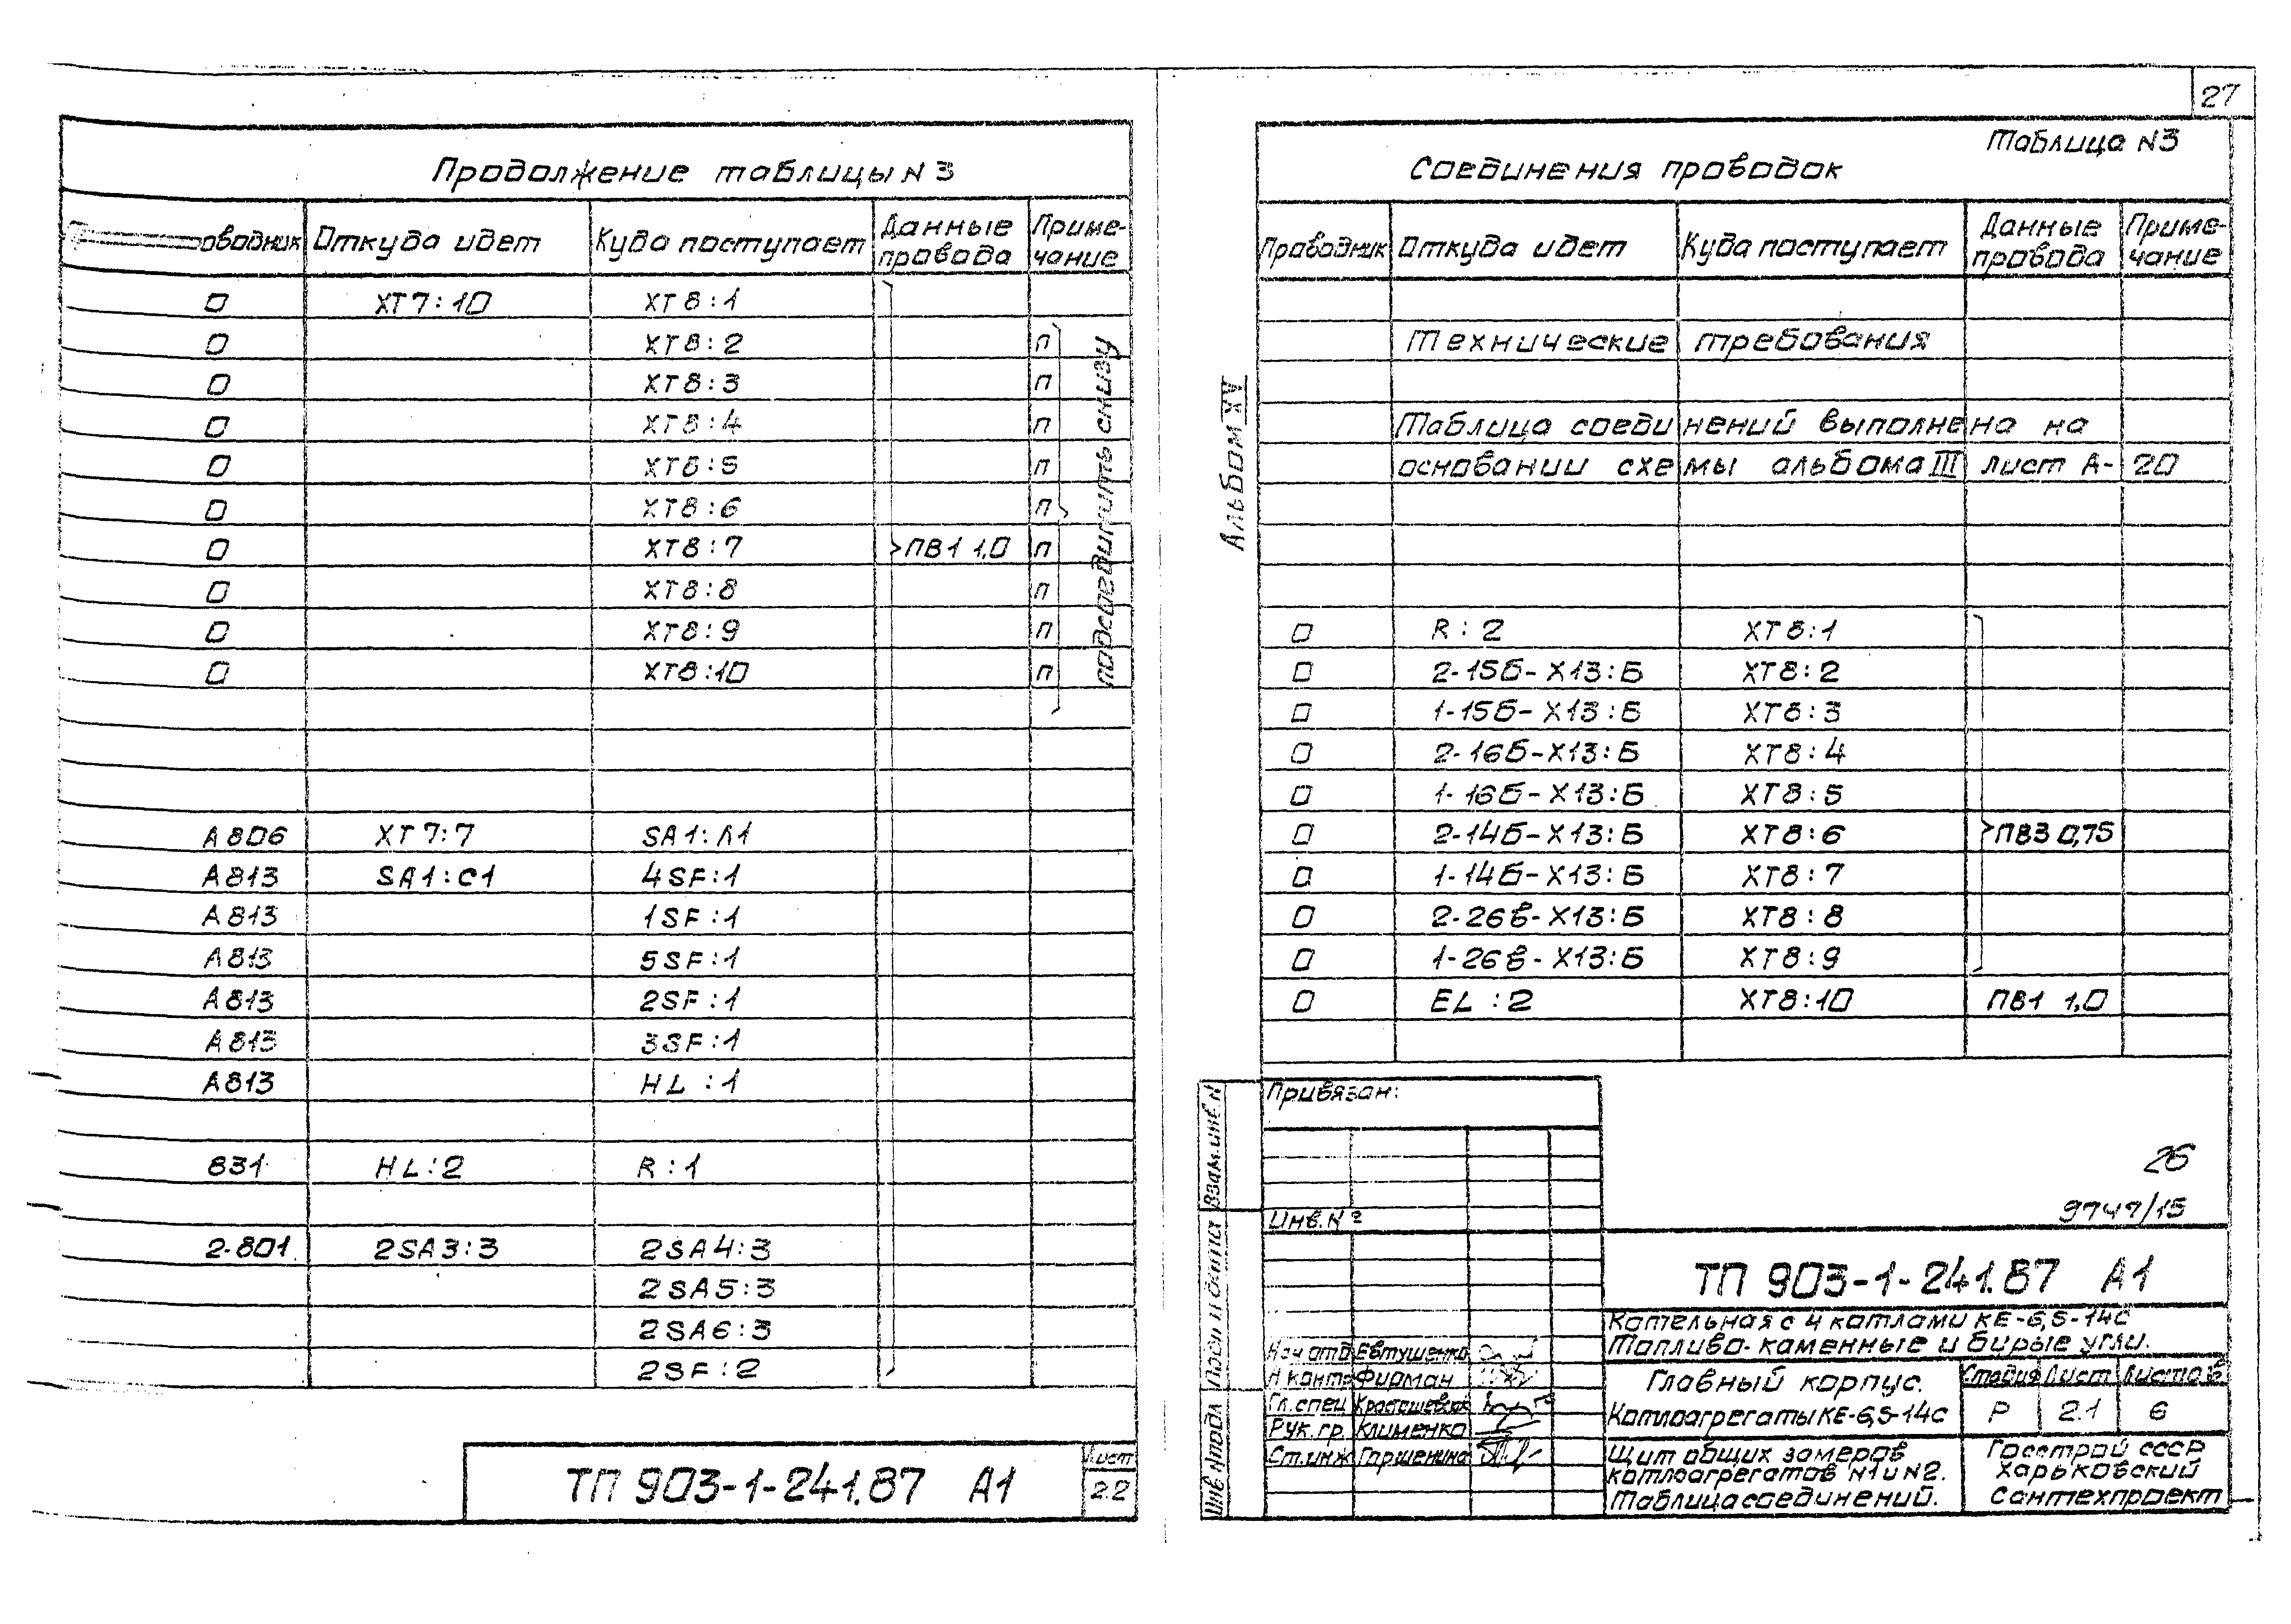 27
Продолжение таблицы N 3
оводник Откуда идет Куда поступает Данные провода Приме-чание
0 XT7:10 XT8:1
0 XT8:2 п
0 XT8:3 п
0 XT8:4 п
0 XT8:5 п
0 XT8:6 п
0 XT8:7 ПВ1 1,0 п
0 XT8:8 п
0 XT8:9 п
0 XT8:10 п
подсоединить снизу
А806 XT7:7 SA1:Л1
А813 SA1:С1 4SF:1
А813 1SF:1
А813 5SF:1
А813 2SF:1
А813 3SF:1
А813 HL:1
831 HL:2 R:1
2-801 2SA3:3 2SA4:3
2SA5:3
2SA6:3
2SF:2
ТП 903-1-241.87 А1
Лист
2.2
Таблица N3
Соединения проводок
Проводник Откуда идет Куда поступает Данные провода Приме-чание
Технические требования
Таблица соединений выполнена на
основании схемы альбома III лист А-20
Альбом XV
0 R:2 XT8:1
0 2-15б-X13:Б XT8:2
0 1-15б-X13:Б XT8:3
0 2-16б-X13:Б XT8:4
0 1-16б-X13:Б XT8:5
0 2-14б-X13:Б XT8:6 ПВ3 0,75
0 1-14б-X13:Б XT8:7
0 2-26в-X13:Б XT8:8
0 1-26в-X13:Б XT8:9
0 EL:2 XT8:10 ПВ1 1,0
Привязан:
Инв.№
Взам.инв.N
Подп и дата
Инв.Nподл
26
9747/15
ТП 903-1-241.87 А1
Котельная с 4 котлами КЕ-6,5-14С
Топливо-каменные и бурые угли.
Нач отд Евтушенко
Н контр Фирман
Гл.спец
Рук.гр. Клименко
Ст.инж Гаршенина
Главный корпус.
Котлоагрегаты КЕ-6,5-14С
Стадия Лист Листов
Р 2.1 6
Щит общих замеров
котлоагрегатов N1 и N2.
Таблица соединений.
Госстрой СССР
Харьковский
Сантехпроект